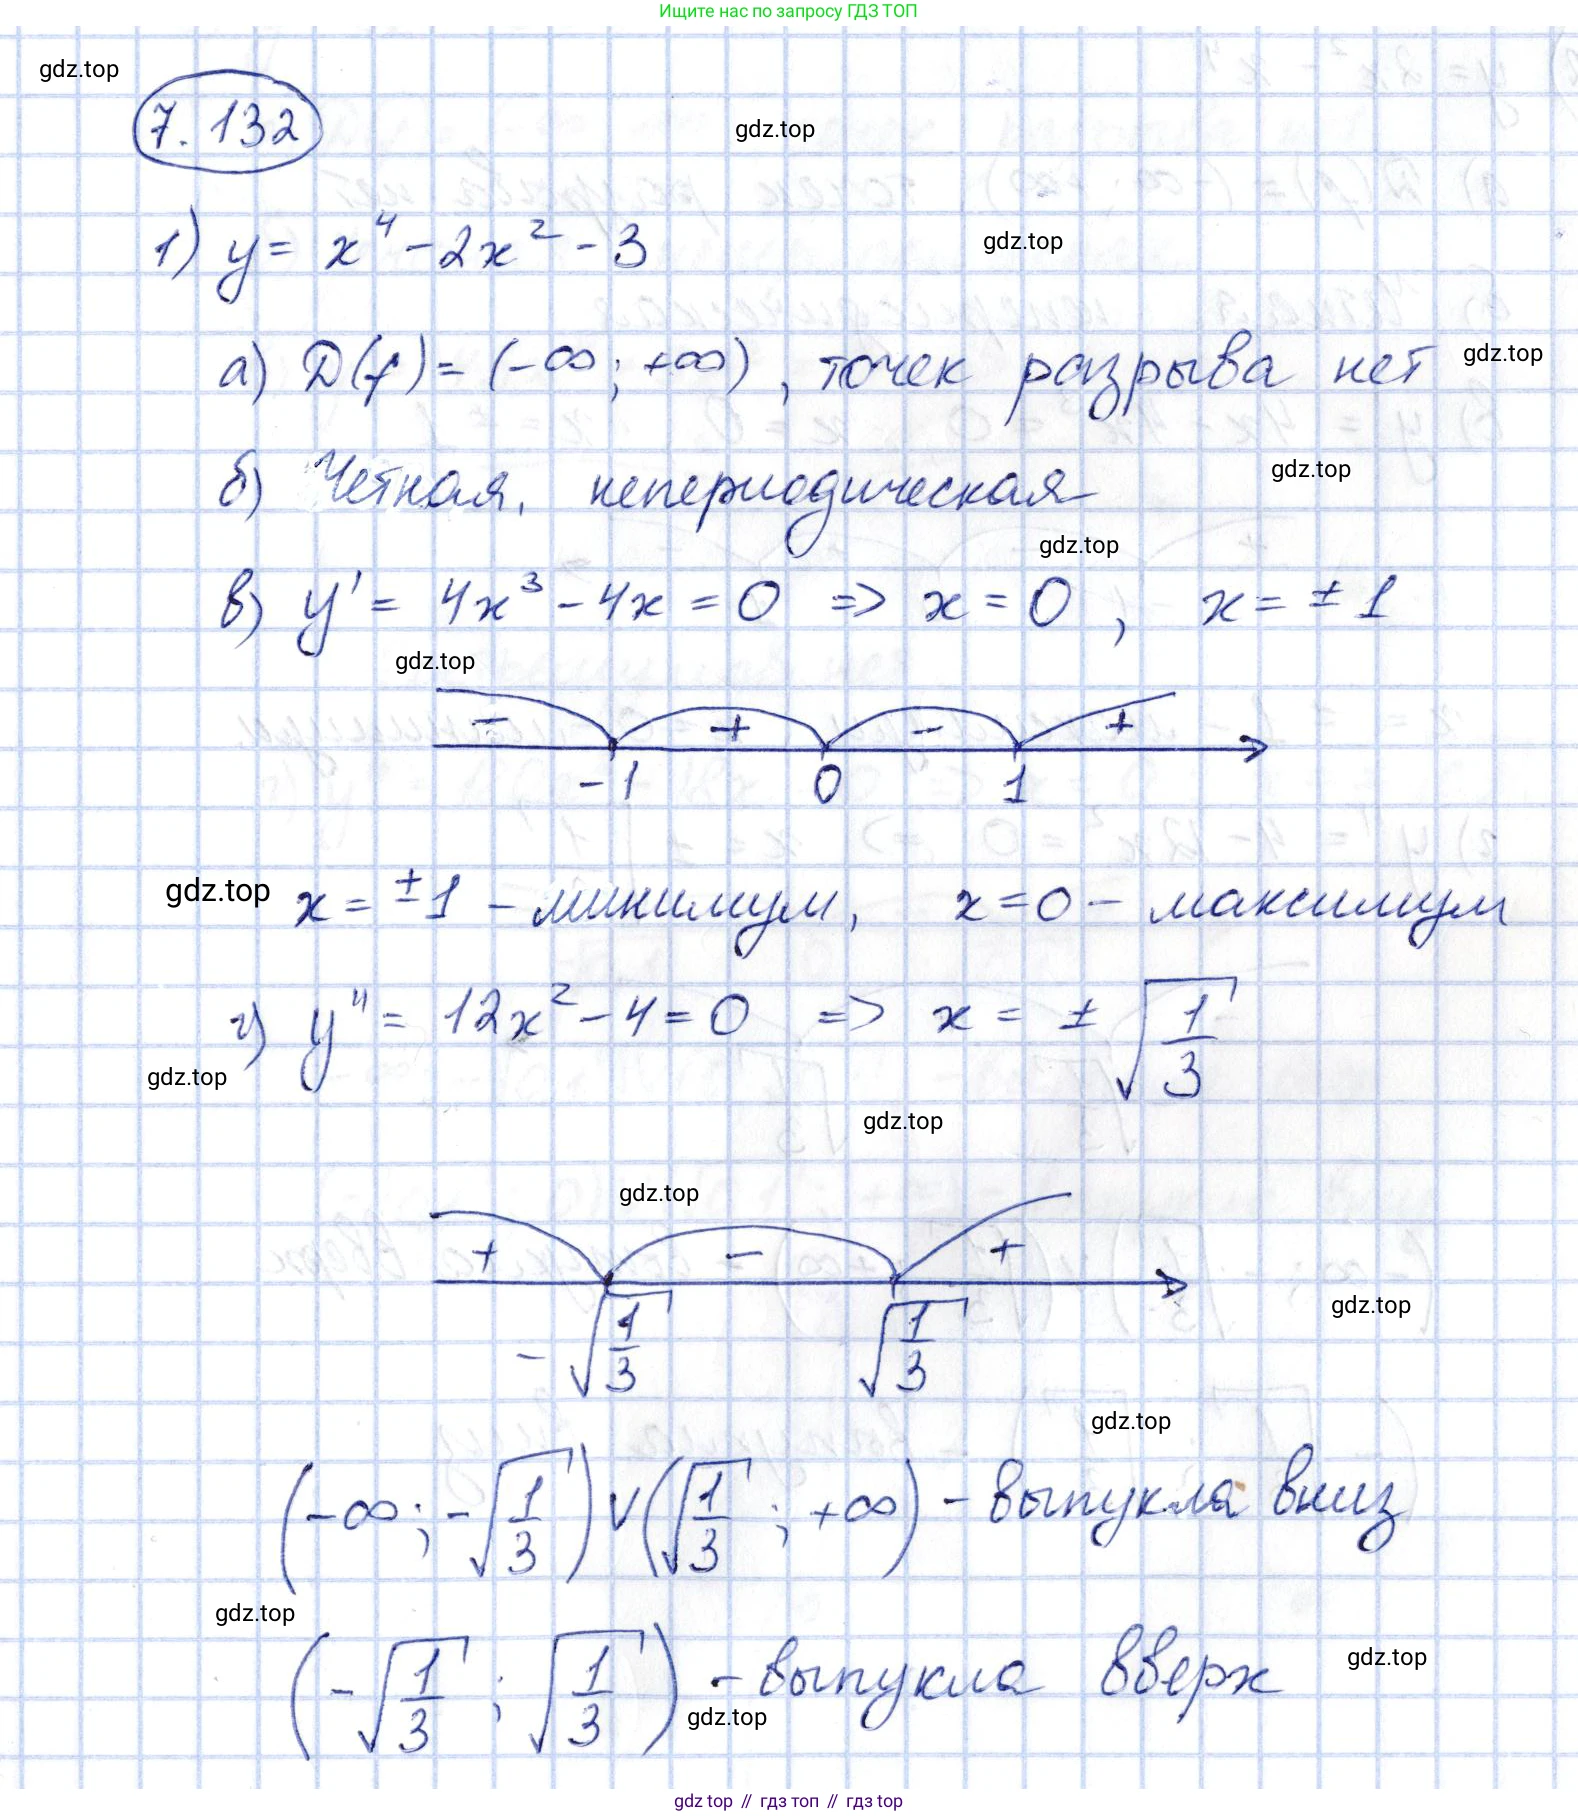 Ищите нас по запросу ГДЗ ТОП
gdz.top
7.132
gdz.top
1) y = x⁴ - 2x² - 3
gdz.top
а) D(f) = (-∞; +∞), точек разрыва нет
gdz.top
б) Четная, непериодическая
gdz.top
gdz.top
в) y' = 4x³ - 4x = 0 => x = 0, x = ± 1
gdz.top
- + - +
-1 0 1
gdz.top
x = ±1 - минимум, x = 0 - максимум
г) y'' = 12x² - 4 = 0 => x = ± √(1/3)
gdz.top
gdz.top
gdz.top
+ - +
-√(1/3) √(1/3)
gdz.top
gdz.top
(-∞; -√(1/3)) ∨ (√(1/3); +∞) - выпукла вниз
gdz.top
(-√(1/3); √(1/3)) - выпукла вверх
gdz.top
gdz.top
gdz top // гдз топ // гдз top